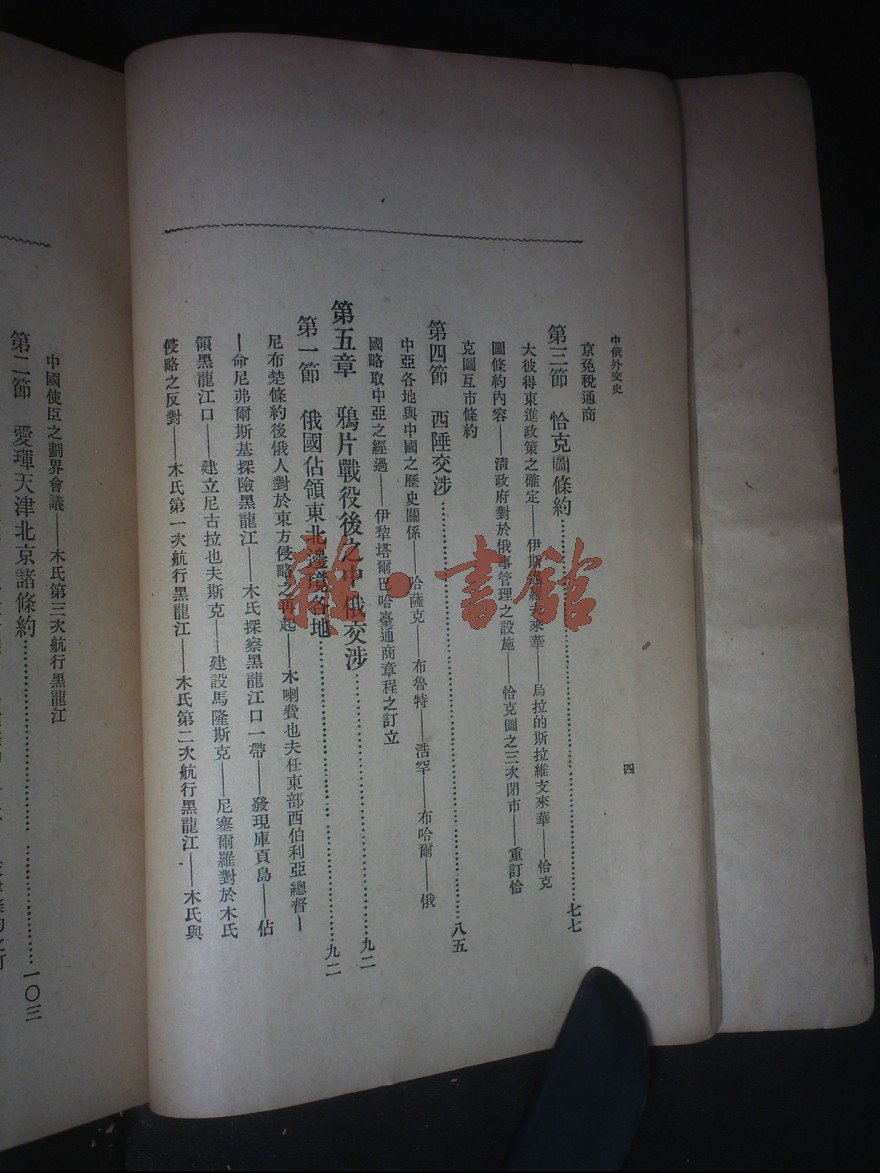 中俄外交史
四
京免稅通商
第三節 恰克圖條約……七七
大彼得東進政策之確定——伊斯 來華——烏拉的斯拉維支來華——恰克
圖條約內容——清政府對於俄事管理之設施——恰克圖之三次閉市——重訂恰
克圖互市條約
第四節 西陲交涉……八五
中亞各地與中國之歷史關係——哈薩克——布魯特——浩罕——布哈爾——俄
國略取中亞之經過——伊犂塔爾巴哈臺通商章程之訂立
第五章 鴉片戰役後之中俄交涉……九二
第一節 俄國佔領東北邊境各地……九二
尼布楚條約後俄人對於東方侵略之再起——木喇費也夫任東部西伯利亞總督—
—命尼弗爾斯基探險黑龍江——木氏探察黑龍江口一帶——發現庫頁島——佔
領黑龍江口——建立尼古拉也夫斯克——建設馬隆斯克——尼塞爾羅對於木氏
侵略之反對——木氏第一次航行黑龍江——木氏第二次航行黑龍江——木氏與
中國使臣之劃界會議——木氏第三次航行黑龍江
第二節 愛琿天津北京諸條約……一〇三
雜·書館